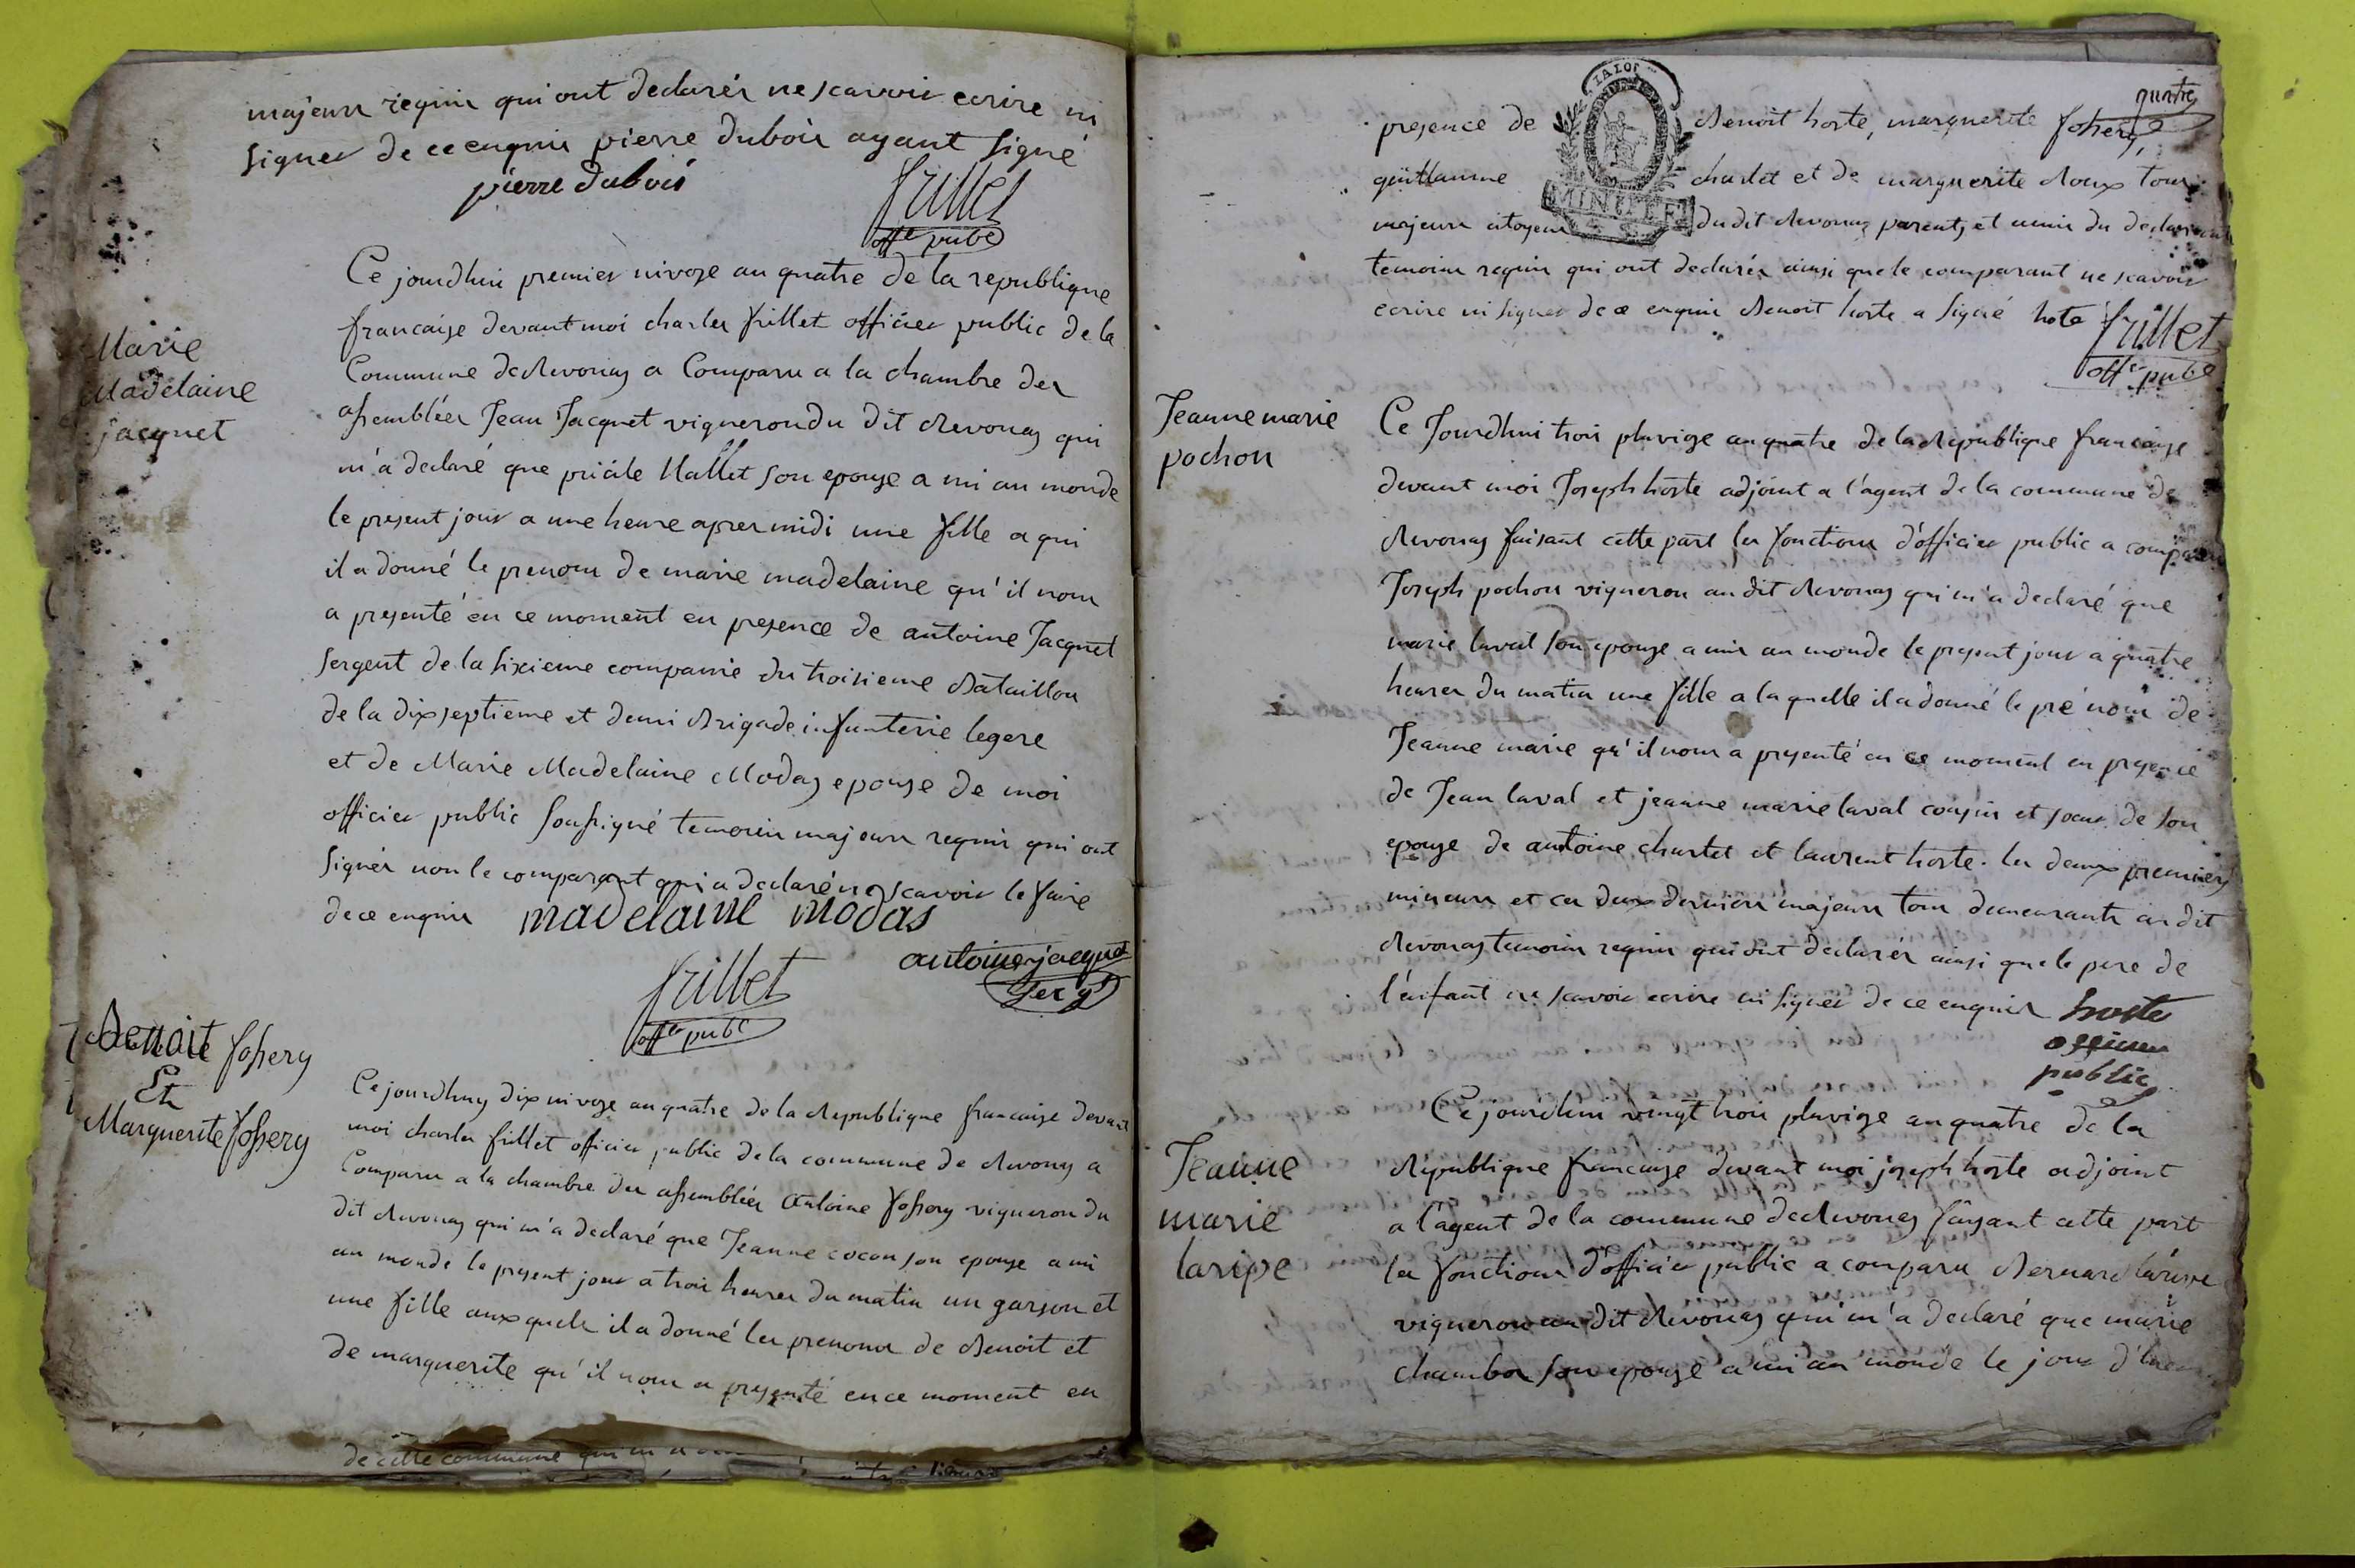 majeurs requis qui ont declarés ne scavoir ecrire ni
signer de ce enquis pierre dubois ayant signé
pierre dubois
frillet
offer pubc
Marie
Madelaine
jacquet
Ce jourdhui premier nivoze an quatre de la republique
francaize devant moi charles frillet officier public de la
Commune de Revonas a Comparu a la chambre des
assemblées Jean Jacquet vigneron du dit Revonas qui
m'a declaré que son epouze a mi au monde
le present jour a une heure apres midi une fille a qui
il a donné le prenom de marie madelaine qu'il nous
a presenté en ce moment en presence de antoine Jacquet
sergent de la sixieme companie du troisieme Bataillon
de la dixseptieme et demi Brigade infanterie legere
et de Marie Madelaine Modas epouze de moi
officier public soussigné temoins majeurs requis qui ont
signés non le comparant qui a declaré ne scavoir le faire
de ce enquis madelaine modas
antoine jacquet
sergt
frillet
offer pubc
Benoit fossery
Et
Marguerite fossery
Ce jourdhuy dix nivoze an quatre de la Republique francaize devant
moi charles frillet officier public de la commune de Revonas a
Comparu a la chambre des assemblées Antoine fossery vigneron du
dit Revonas qui m'a declaré que Jeanne cocon son epouze a mi
au monde le present jour a trois heures du matin un garson et
une fille auxquels il a donné les prenoms de Benoit et
de marguerite qu'il nous a presenté en ce moment en
de cette commune qui m'a
quatre
presence de Benoit hoste, marguerite fossery,
guillaume charlet et de marguerite Roux tous
majeurs citoyens du dit Revonas parents et amis du declarant
temoins requis qui ont declarés ainsi que le comparant ne scavoir
ecrire ni signer de ce enquis Benoit hoste a signé hote
frillet
offer pubc
MINUTE
Jeanne marie
pochon
Ce Jourdhui trois pluvioze an quatre de la Republique francaize
devant moi Joseph hoste adjoint a l'agent de la commune de
Revonas faisant cette part les fonctions d'officier public a comparu
Joseph pochon vigneron au dit Revonas qui m'a declaré que
marie laval son epouze a mis au monde le present jour a quatre
heures du matin une fille a laquelle il a donné le pré nom de
Jeanne marie qu'il nous a presenté en ce moment en presence
de Jean laval et jeanne marie laval cousin et soeur de son
epouze de antoine charlet et laurent hoste. les deux premiers
mineurs et ces deux derniers majeurs tous demeurants au dit
Revonas temoins requis qui ont declarés ainsi que le pere de
l'enfant ne scavoir ecrire ni signer de ce enquis hoste
officier
public
Jeanne
marie
laripe
Ce jourdhui vingt trois pluvioze an quatre de la
Republique francaize devant moi joseph hoste adjoint
a l'agent de la commune de Revonas faisant cette part
les fonctions d'officier public a comparu Bernard laripe
vigneron au dit Revonas qui m'a declaré que marie
chambos son epouze a mi au monde le jour d'hier